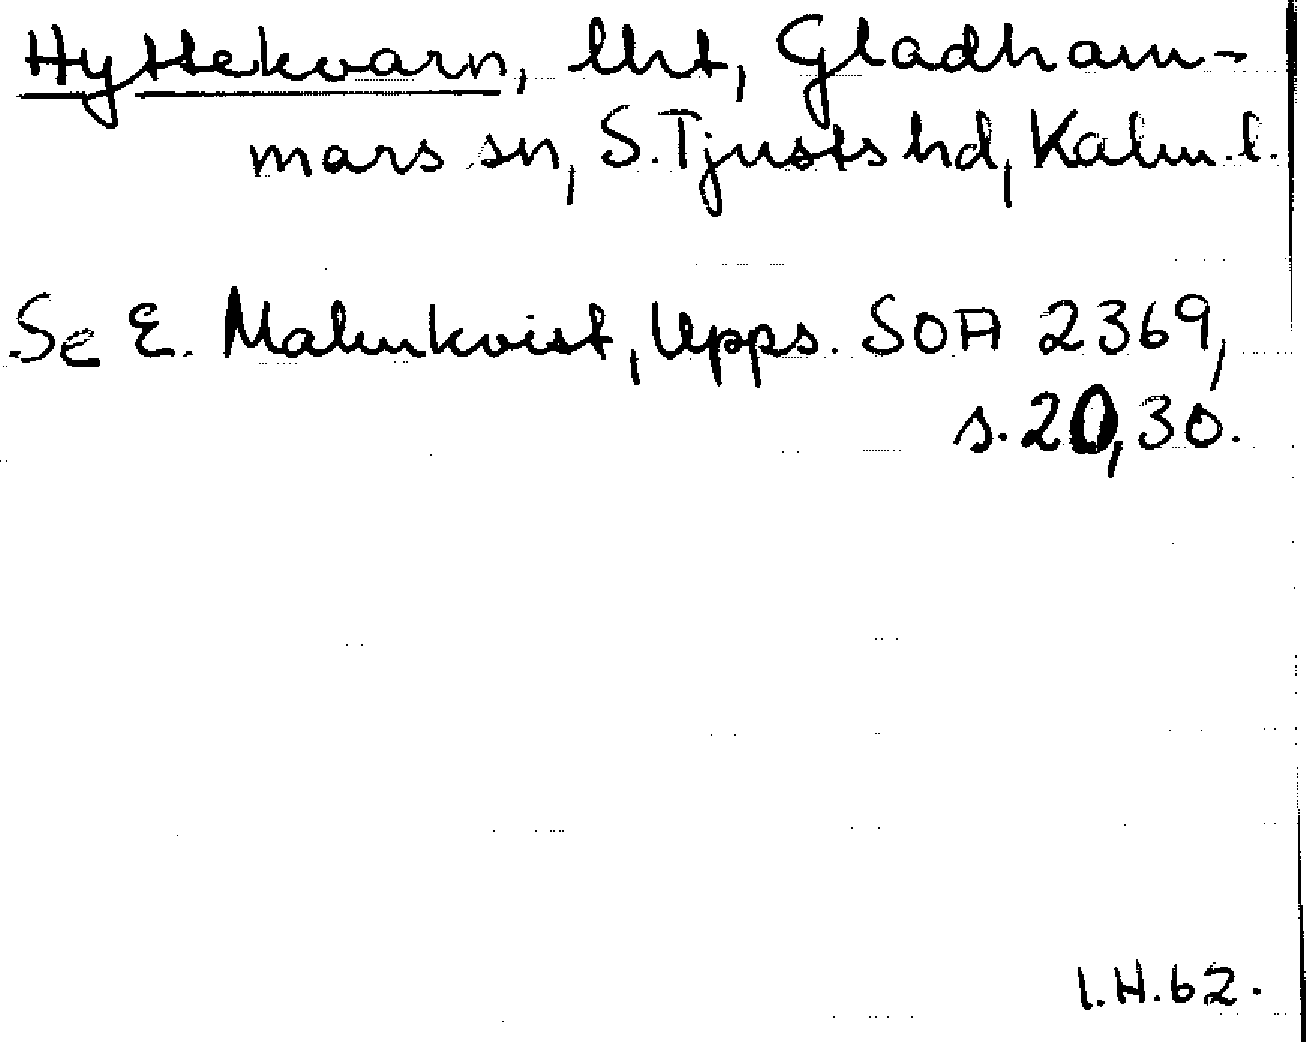 Hyttekvarn, lht, Gladham-
mars sn, S. Tjusts hd, Kalm. l.
Se E. Malmkvist, Upps. SOA 2369,
s. 20, 30.
I.H. 62.